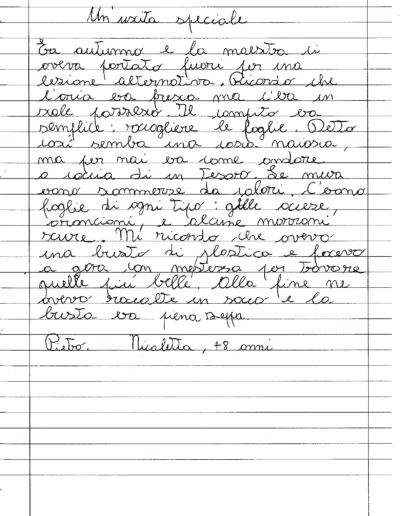 Un'uscita speciale
Era autunno e la maestra ci
aveva portato fuori per una
lezione alternativa. Ricordo che
l'aria era fresca ma c'era un
sole pazzesco. Il compito era
semplice: raccogliere le foglie. Detto
così sembra una cosa noiosa,
ma per noi era come andare
a caccia di un tesoro. Le mura
erano sommerse da colori. C'erano
foglie di ogni tipo: gialle accese,
arancioni, e alcune marroni
scure. Mi ricordo che avevo
una busta di plastica e facevo
a gara con mestessa per trovare
quelle più belle. Alla fine ne
avevo raccolte un sacco e la
busta era piena zeppa.
Nicoletta, 48 anni